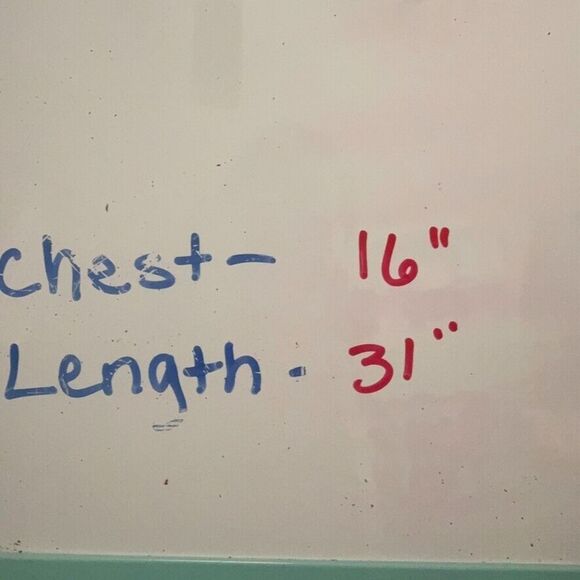 chest- 16"
Length - 31"